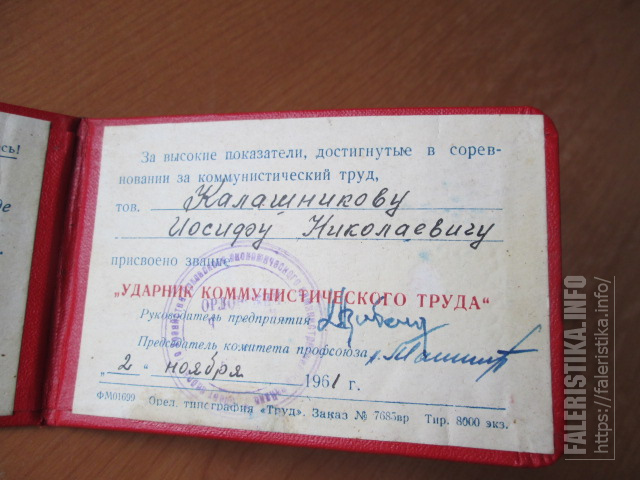 сь!
За высокие показатели, достигнутые в сорев-
новании за коммунистический труд,
тов. Калашникову
Иосифу Николаевичу
присвоено звание
„УДАРНИК КОММУНИСТИЧЕСКОГО ТРУДА“
Руководитель предприятия
Председатель комитета профсоюза
„2“ ноября 1961 г.
ФМ01699 Орел. типография «Труд». Заказ № 7685вр Тир. 8000 экз.
FALERISTIKA.INFO
https://faleristika.info/